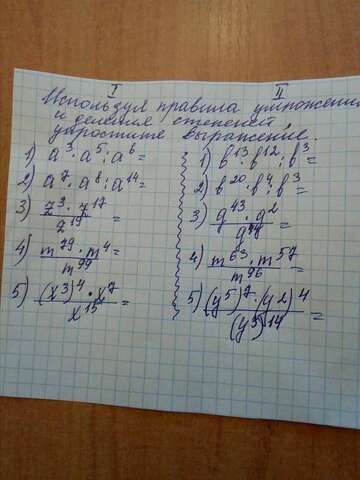 I II
Используя правила умножения
и деления степеней,
упростите выражение.
1) a³·a⁵:a⁶=
2) a⁷·a⁸:a¹⁴=
3) z³·z¹⁷ / z¹⁹ =
4) m⁷⁹·m⁴ / m⁹⁹ =
5) (x³)⁴·x⁷ / x¹⁵ =
1) b¹³·b¹²:b³=
2) b²⁰·b⁴:b³=
3) g⁴³·g² / g⁴⁴ =
4) m⁶³·m⁵⁷ / m⁹⁶ =
5) (y⁵)⁷·(y²)⁴ / (y³)¹⁴ =